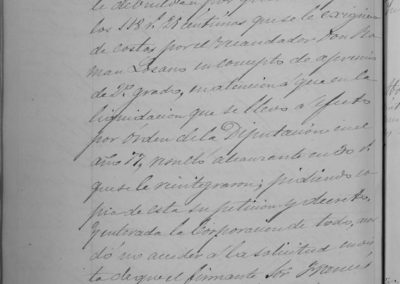 le devuelvan por
los 118 r.s 28 centimos que se le exigieron
de costas por el recaudador Don Ra
man Lozano en concepto de apremio
de 2º grado, en atencion a que en la
liquidacion que se llevo a efecto
por órden de la Diputacion en el
año 77, resultó alcanzante en 30 r.s
que se le reintegraron; pidiendo co
pia de esta su peticion y decreto,
y enterada la Corporacion de todo, acor
dó no acceder a la solicitud en vis
ta de que el firmante Sor. Francis